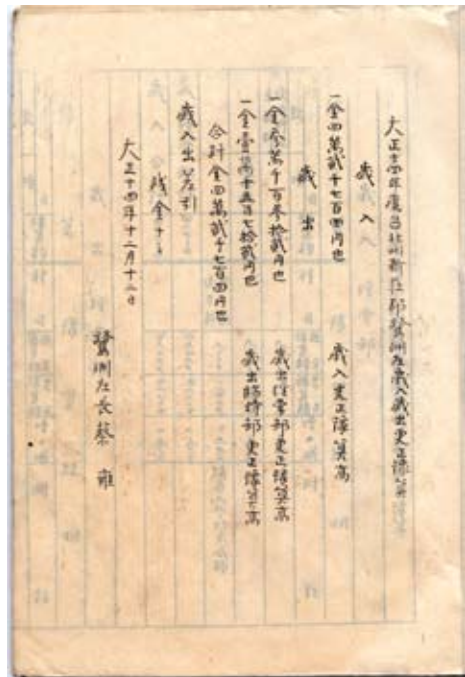 大正十四年度台北州新莊郡鷺洲庄歲入歲出更正豫算
歲入
一金四萬貳千七百四円也 歲入更正豫算高
歲出
一金參萬千百參拾貳円也 歲出經常部更正豫算高
一金壹萬千五百七拾貳円也 歲出臨時部更正豫算高
合計金四萬貳千七百四円也
歲入出差引
殘金ナシ
大正十四年十二月十二日
鷺洲庄長蔡雍